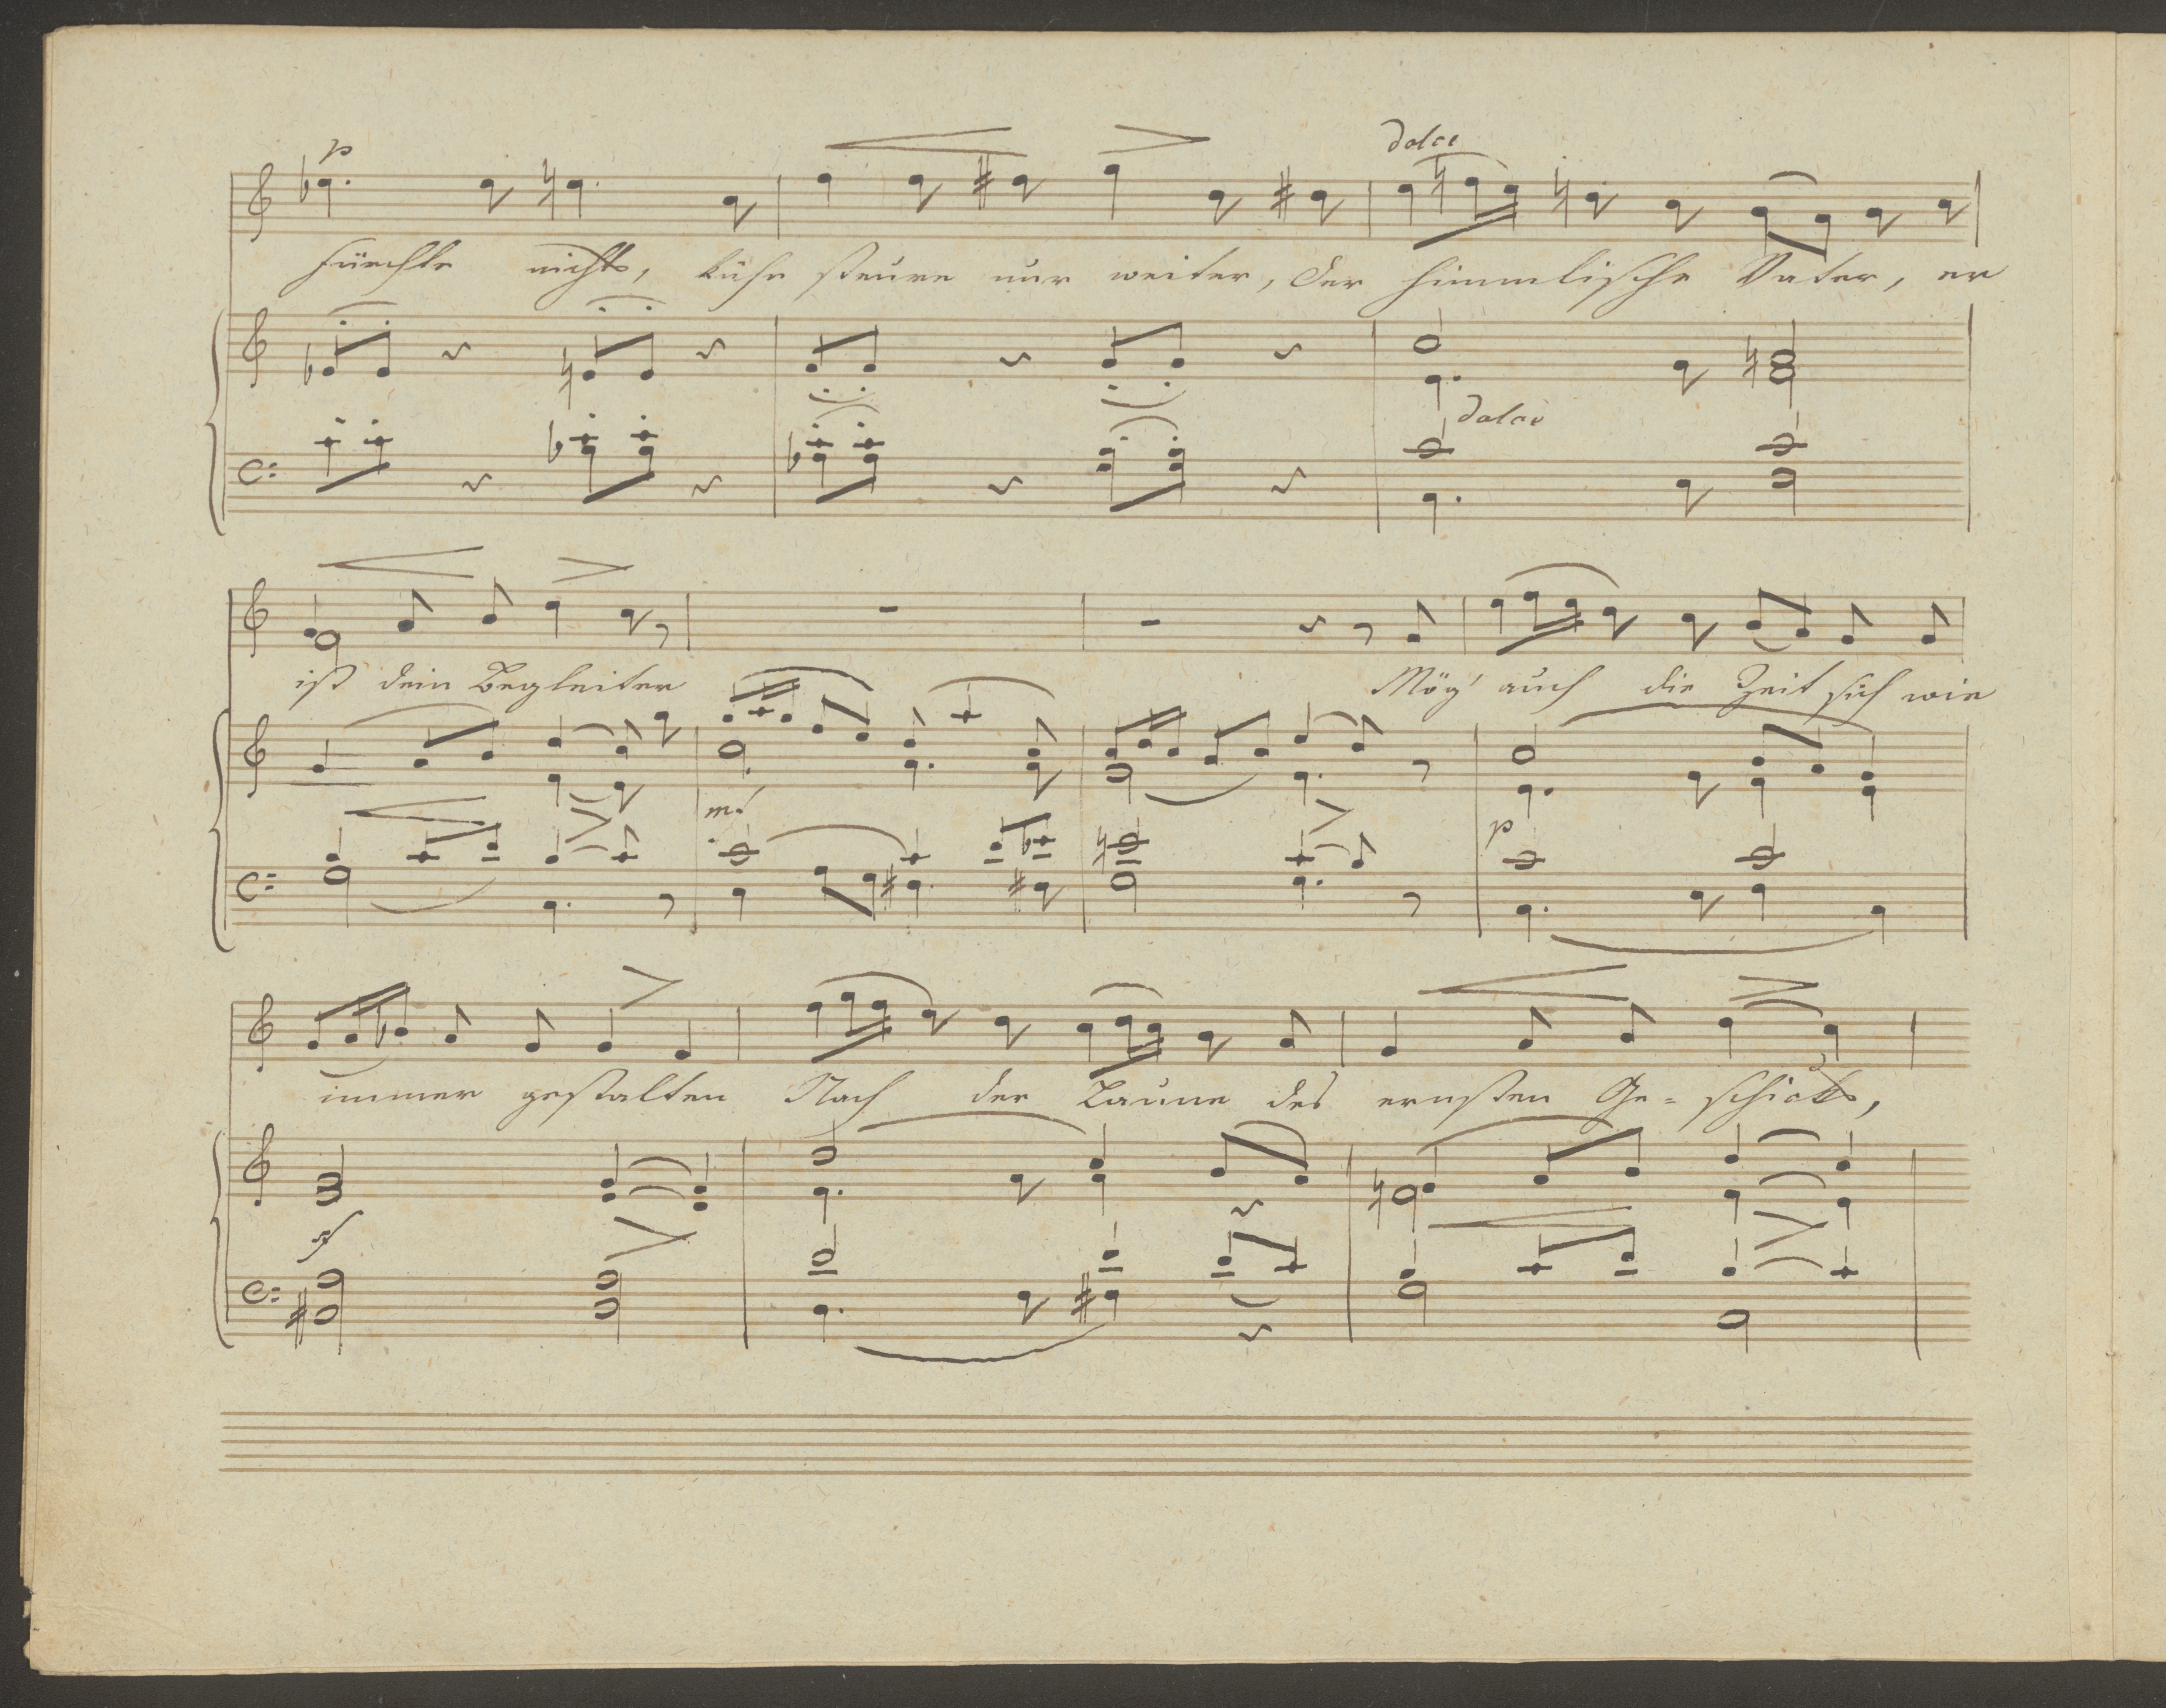 p
dolce
fürchte nichts, kühn steure nur weiter, der himmlische Vater, er
dolce
ist dein Begleiter Mög' auch die Zeit sich wie
mf
p
immer gestalten Nach der Laune des ernsten Ge-schicks,
sf